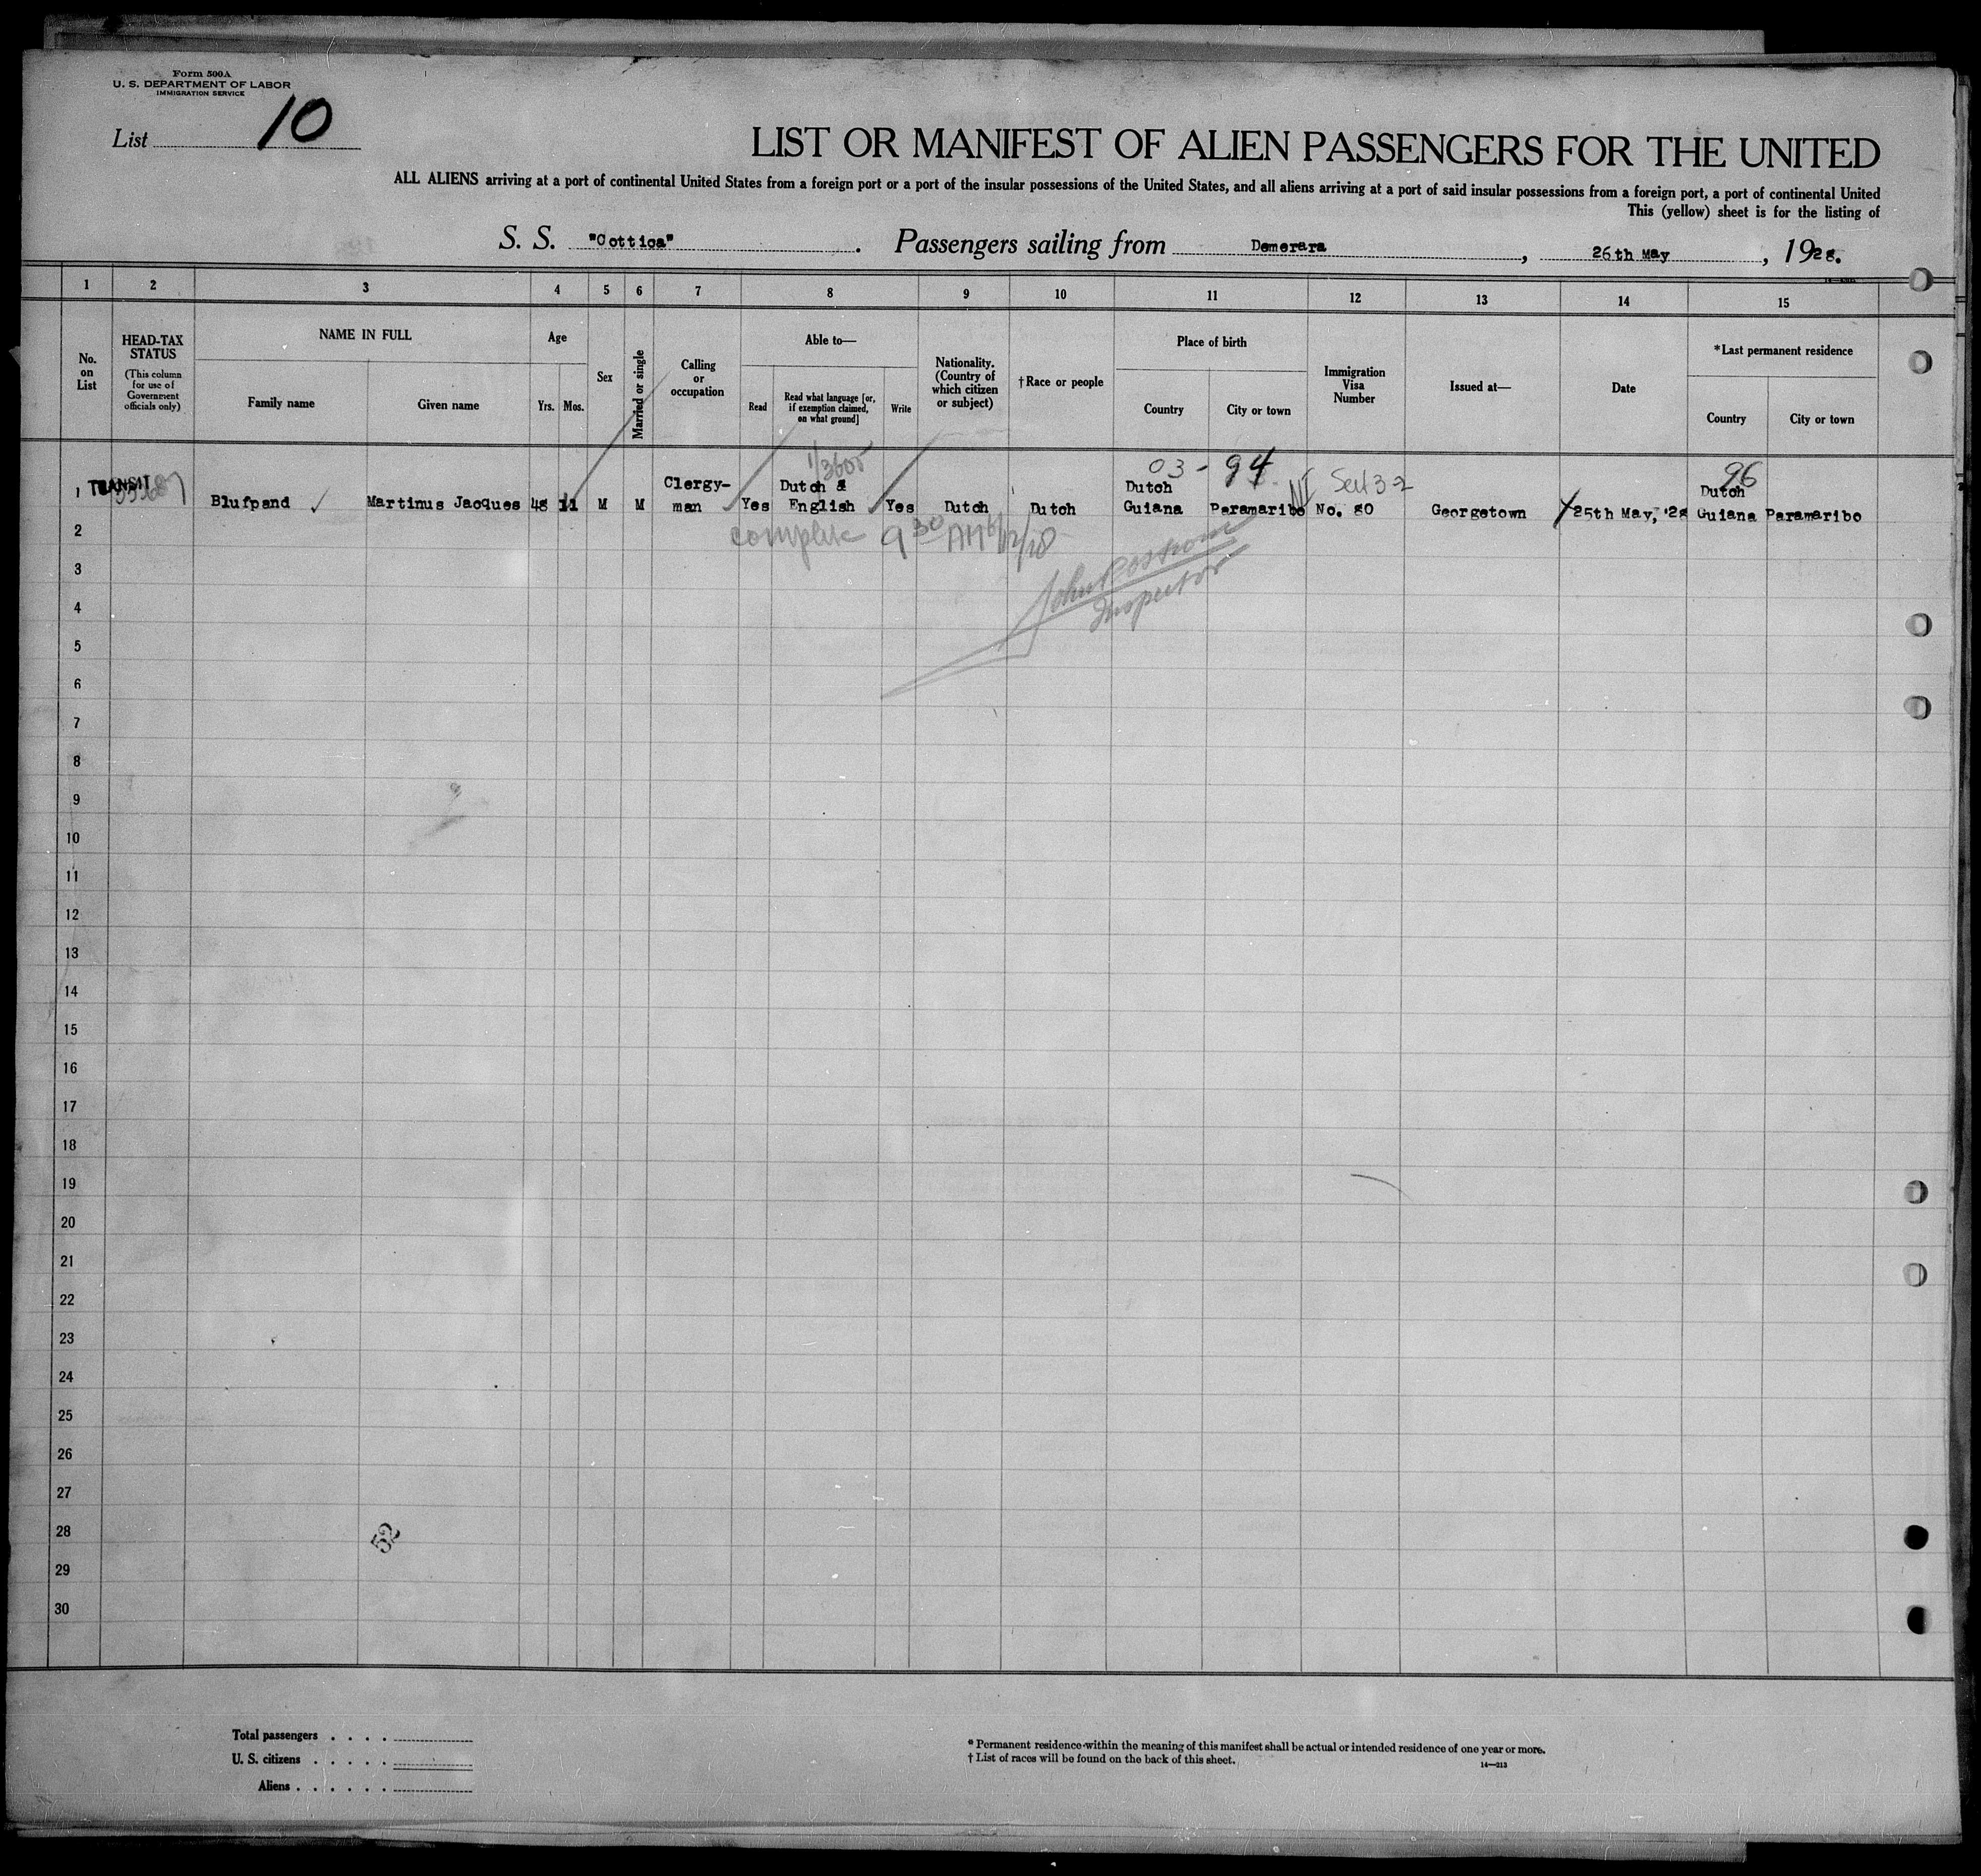 Form 500A
U. S. DEPARTMENT OF LABOR
IMMIGRATION SERVICE
List 10
LIST OR MANIFEST OF ALIEN PASSENGERS FOR THE UNITED
ALL ALIENS arriving at a port of continental United States from a foreign port or a port of the insular possessions of the United States, and all aliens arriving at a port of said insular possessions from a foreign port, a port of continental United
This (yellow) sheet is for the listing of
S. S. "Cottica". Passengers sailing from Demerara, 26th May, 1928.
1 2 3 4 5 6 7 8 9 10 11 12 13 14 15
No. on List
HEAD-TAX STATUS
(This column for use of Government officials only)
NAME IN FULL
Family name
Given name
Age
Yrs.
Mos.
Sex
Married or single
Calling or occupation
Able to—
Read
Read what language [or, if exemption claimed, on what ground]
Write
Nationality. (Country of which citizen or subject)
†Race or people
Place of birth
Country
City or town
Immigration Visa Number
Issued at—
Date
*Last permanent residence
Country
City or town
03 - 94
96
1 TRANSIT Blufpand Martinus Jacques 48 11 M M Clergy-man Yes Dutch & English Yes Dutch Dutch Dutch Guiana Paramaribo No. 80 Georgetown 25th May, '28 Dutch Guiana Paramaribo
complete 9 30 AM 6/12/28
Inspector
2
3
4
5
6
7
8
9
10
11
12
13
14
15
16
17
18
19
20
21
22
23
24
25
26
27
28
29
30
52
Total passengers . . . .
U. S. citizens . . . . .
Aliens . . . . . .
* Permanent residence within the meaning of this manifest shall be actual or intended residence of one year or more.
† List of races will be found on the back of this sheet.
14—213